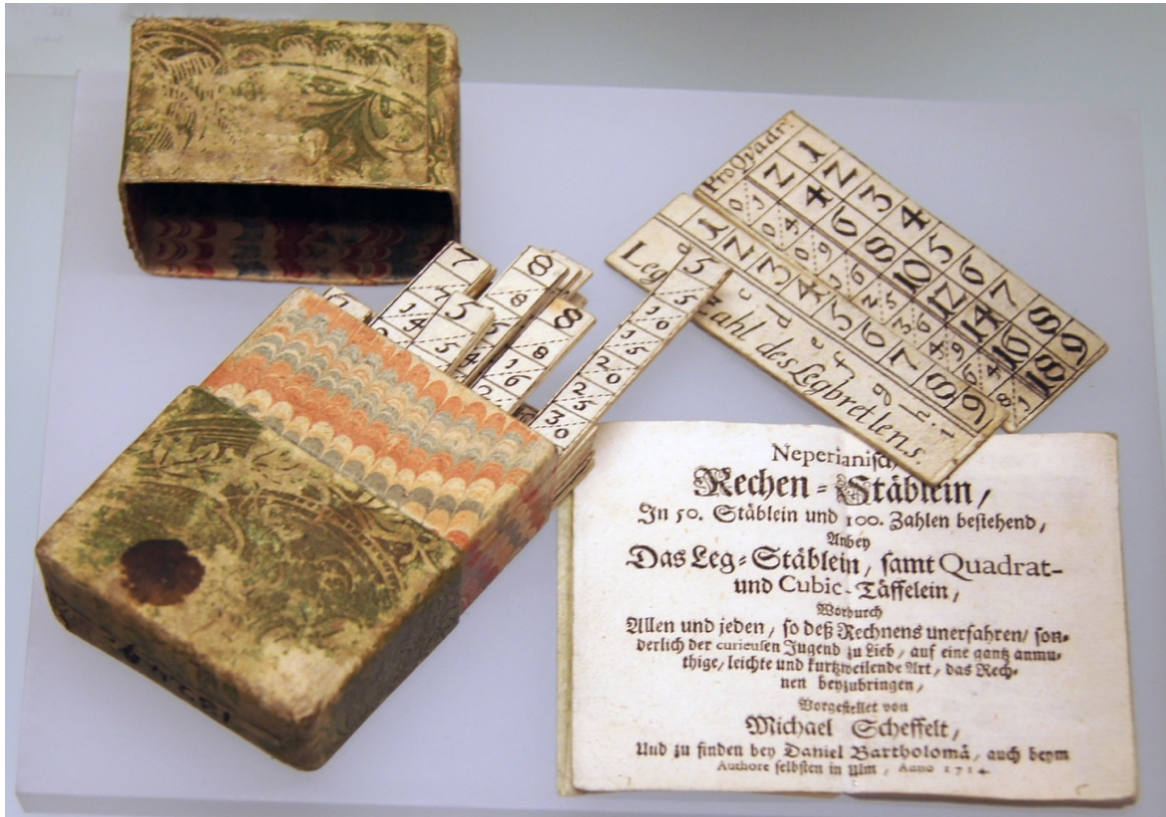 7
7
14
5
5
8
8
8
8
16
5
5
10
15
20
25
30
Pro Qvadr.
1 2 3 4 5 6 7 8 9
2 4 6 8 10 12 14 16 18
1 2 3 4 5 6 7 8 9
Leg
Zahl des Legbretlens.
Neperianisch
Rechen-Stäblein/
In 50. Stäblein und 100. Zahlen bestehend,
Anbey
Das Leg-Stäblein, samt Quadrat-
und Cubic-Täffelein,
Wordurch
Allen und jeden, so deß Rechnens unerfahren/ son-
derlich der curieusen Jugend zu Lieb, auf eine gantz anmu-
thige, leichte und kurtzweilende Art, das Rech-
nen beyzubringen,
Vorgestellet von
Michael Scheffelt,
Und zu finden bey Daniel Bartholomä, auch beym
Authore selbsten in Ulm, Anno 1714